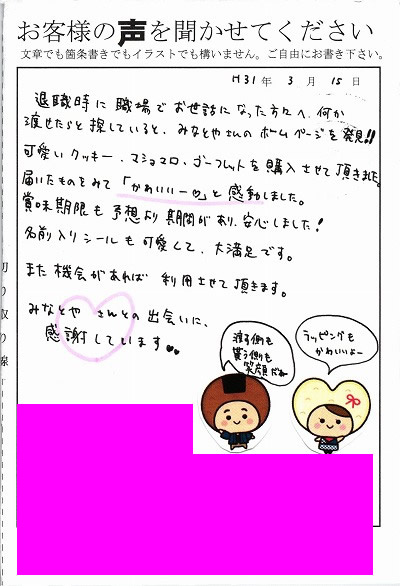 お客様の声を聞かせてください
文章でも箇条書きでもイラストでも構いません。ご自由にお書き下さい。
H31年 3月 15日
退職時に職場でお世話になった方々へ、何か
渡せたらと探していると、みなとやさんのホームページを発見!!
可愛いクッキー、マシュマロ、ゴーフレットを購入させて頂きました。
届いたものをみて「かわいいー♡」と感動しました。
賞味期限も予想より期間があり、安心しました!
名前入りシールも可愛くて、大満足です。
また機会があれば利用させて頂きます。
みなとやさんとの出会いに、
感謝しています♥♥
渡す側も
貰う側も
笑顔だね
ラッピングも
かわいいよー
切り取り線